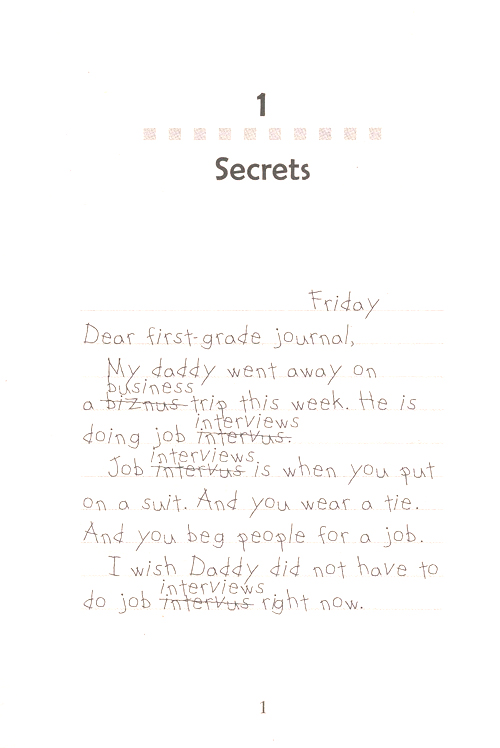 1
Secrets
Friday
Dear first-grade journal,
My daddy went away on
business
a biznus trip this week. He is
interviews
doing job intervus.
interviews
Job intervus is when you put
on a suit. And you wear a tie.
And you beg people for a job.
I wish Daddy did not have to
interviews
do job intervus right now.
1